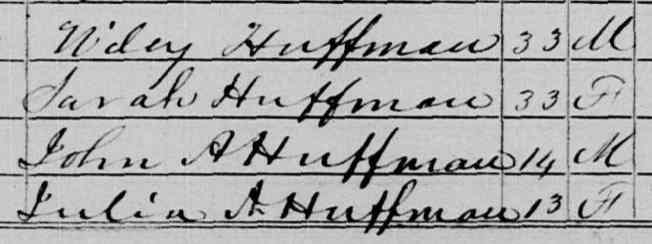 Wiley Huffman 33 M
Sarah Huffman 33 F
John A Huffman 14 M
Julia A Huffman 13 F